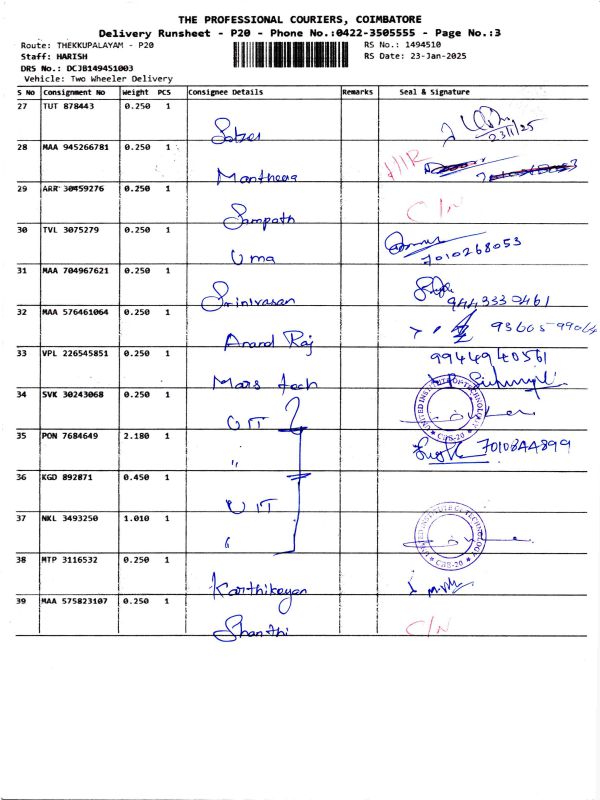 THE PROFESSIONAL COURIERS, COIMBATORE
Delivery Runsheet - P20 - Phone No.:0422-3505555 - Page No.:3
Route: THEKKUPALAYAM - P20 RS No.: 1494510
Staff: HARISH RS Date: 23-Jan-2025
DRS No.: DCJB149451003
Vehicle: Two Wheeler Delivery
S No Consignment No Weight PCS Consignee Details Remarks Seal & Signature
27 TUT 878443 0.250 1
23/1/25
28 MAA 945266781 0.250 1
Mantheera
29 ARR 30459276 0.250 1
Sampath C/N
30 TVL 3075279 0.250 1
Uma 7010268053
31 MAA 704967621 0.250 1
Srinivasan 9443330461
32 MAA 576461064 0.250 1
Anand Raj 93605-99064
33 VPL 226545851 0.250 1 9944940561
Mars tech
34 SVK 30243068 0.250 1
UIT UNITED INSTITUTE OF TECHNOLOGY * CBE-20 *
35 PON 7684649 2.180 1
" 7010844899
36 KGD 892871 0.450 1
UIT
37 NKL 3493250 1.010 1
" UNITED INSTITUTE OF TECHNOLOGY * CBE-20 *
38 MTP 3116532 0.250 1
Karthikeyan
39 MAA 575823107 0.250 1
Shanthi C/N